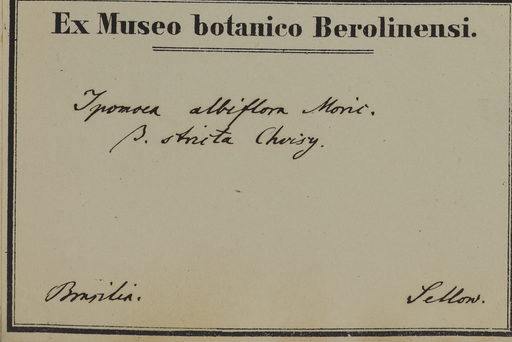 Ex Museo botanico Berolinensi.
Ipomoea albiflora Moric.
β. stricta Choisy.
Brasilia.
Sellow.